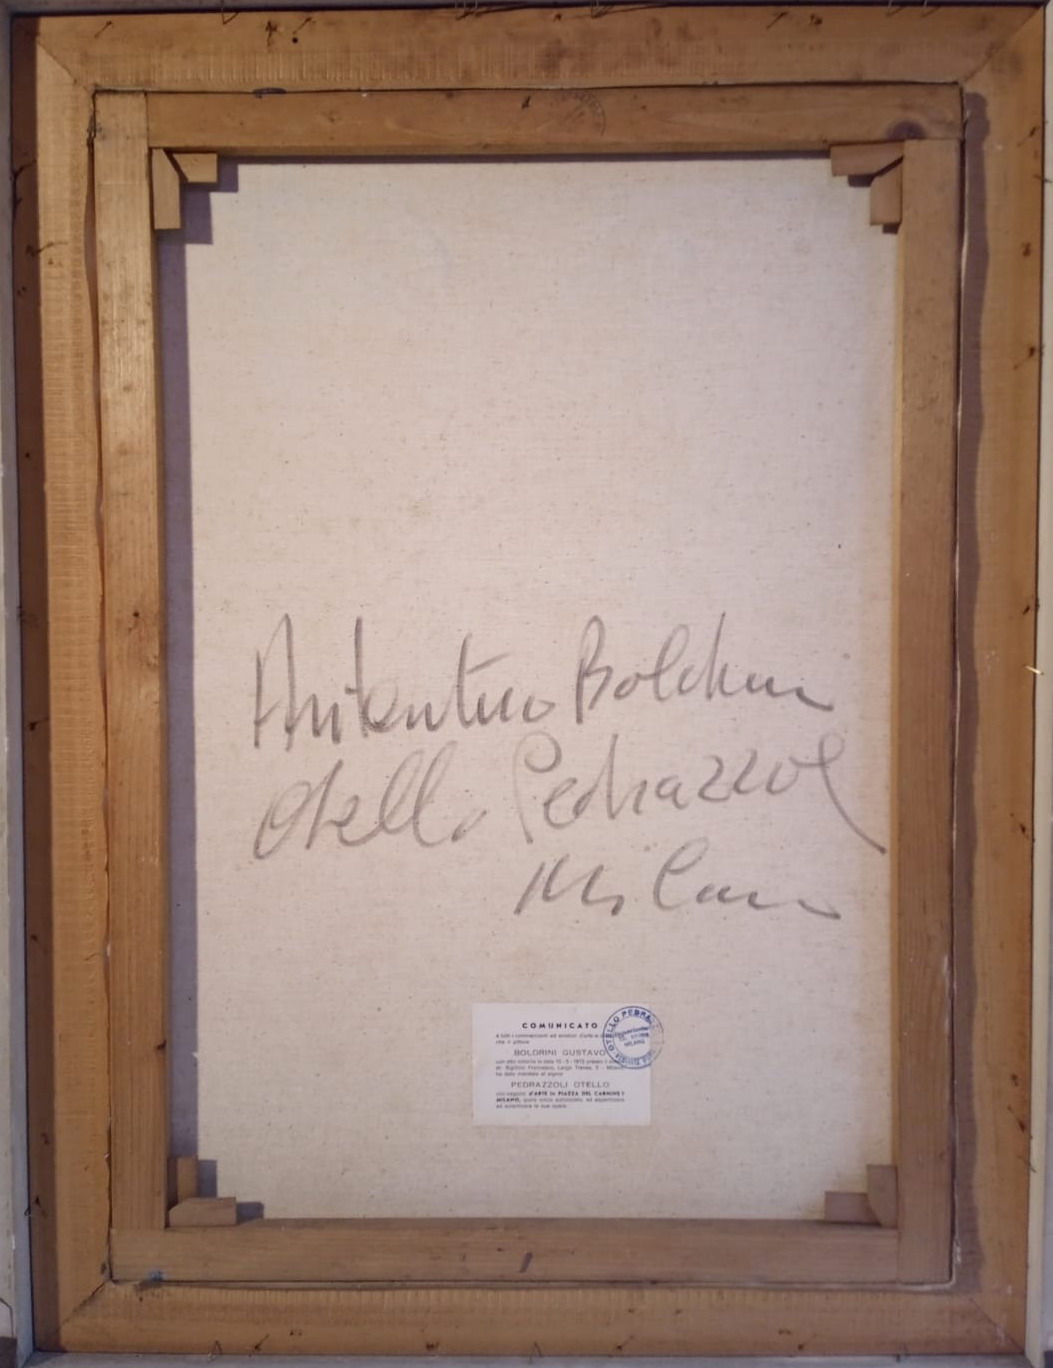 Autentico Boldrini
Otello Pedrazzoli
Milano
COMUNICATO
a tutti i commercianti ed amatori d'arte
che il pittore
BOLDRINI GUSTAVO
con atto notarile in data 10 - 5 - 1973 presso il
dr. Francesco, Largo Treves, 5 - Milano
ha dato mandato al signor
PEDRAZZOLI OTELLO
con negozio d'ARTE in PIAZZA DEL CARMINE 1
MILANO, quale unico autorizzato, ad espertizzare
ed autenticare le sue opere.
OTELLO
MILANO